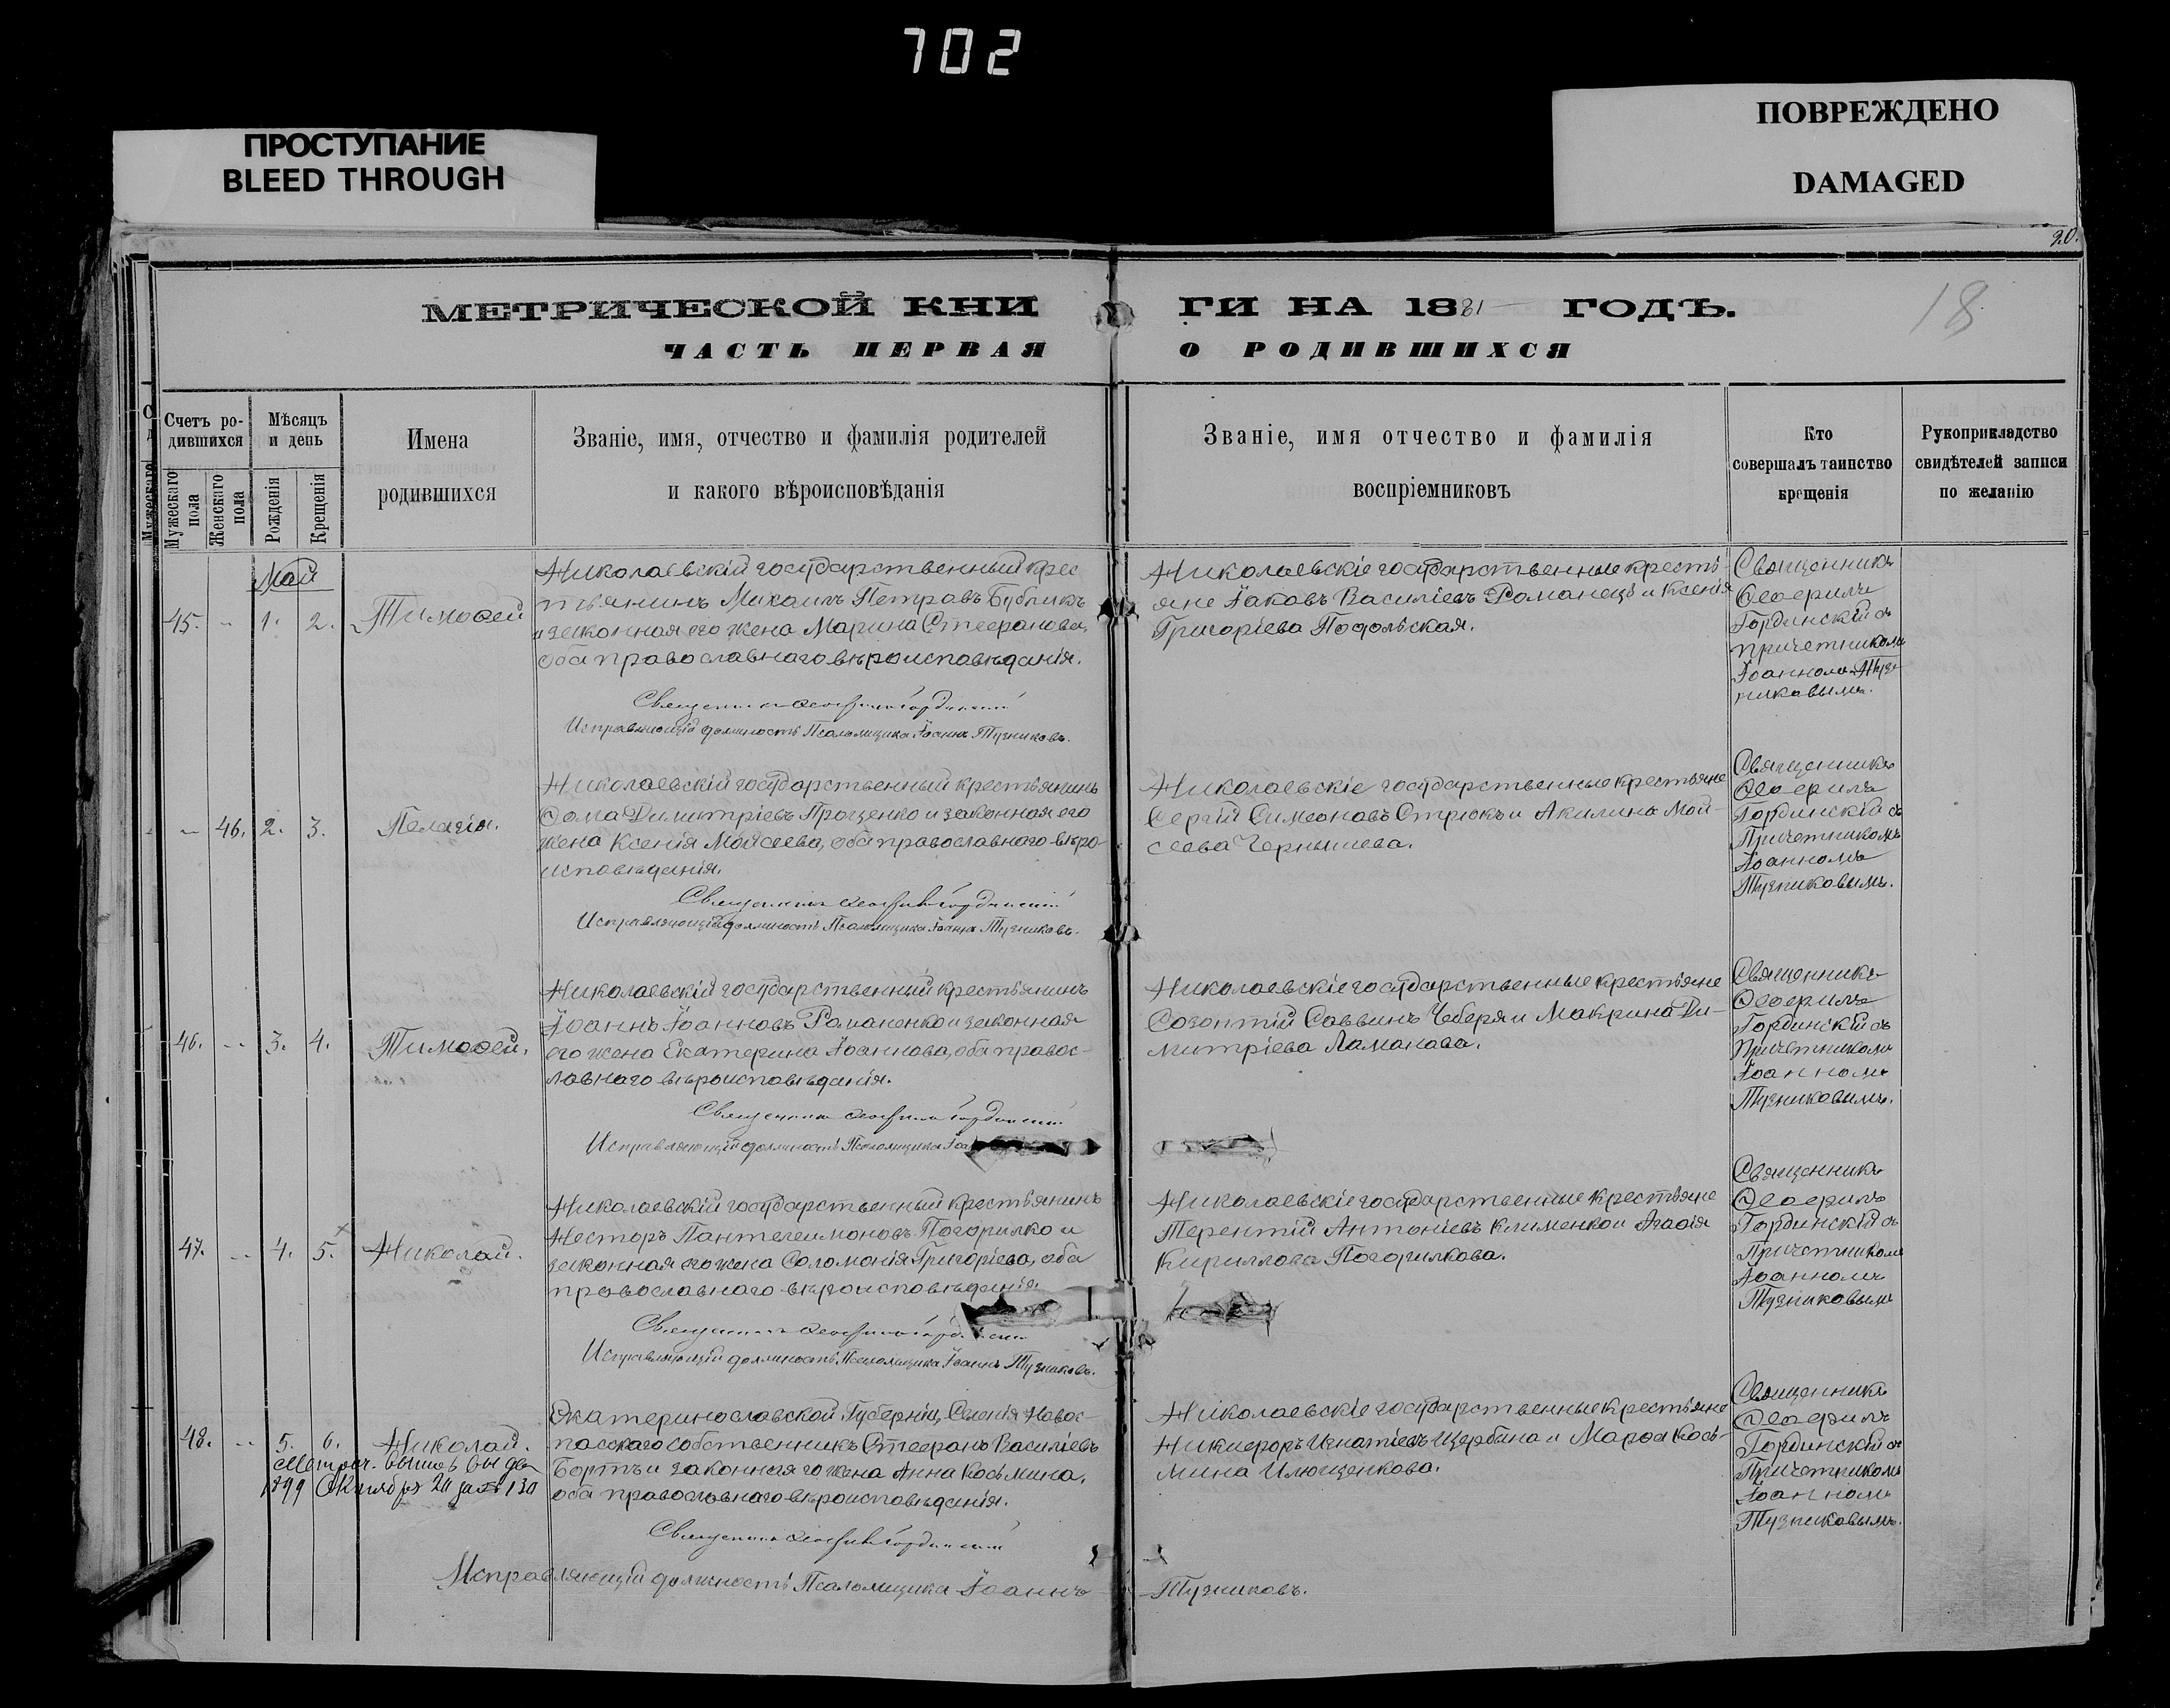 702
ПРОСТУПАНИЕ
BLEED THROUGH
ПОВРЕЖДЕНО
DAMAGED
20.
18
МЕТРИЧЕСКОЙ КНИ ГИ НА 1881 ГОДЪ.
ЧАСТЬ ПЕРВАЯ О РОДИВШИХСЯ
Счетъ ро-
дившихся
Мужескаго пола
Женскаго пола
Мѣсяцъ
и день
Рожденія
Крещенія
Имена
родившихся
Званіе, имя, отчество и фамилія родителей
и какого вѣроисповѣданія
Званіе, имя отчество и фамилія
воспріемниковъ
Кто
совершалъ таинство
крещенія
Рукоприкладство
свидѣтелей записи
по желанію
Май
45. - 1. 2. Тимоѳей
Николаевскій государственный крес
тьянинъ Михаилъ Петровъ Бубликъ
и законная его жена Марина Стефанова,
оба православнаго вѣроисповѣданія.
Священникъ Ѳеофилъ Гординскій
Исправляющій должность Псаломщика Іоаннъ Тузниковъ.
Николаевскіе государственные кресть-
яне Іаковъ Василіевъ Романецъ и Ксенія
Григоріева Подольская.
Священникъ
Ѳеофилъ
Гординскій съ
причетникомъ
Іоанномъ Туз-
никовымъ.
- 46. 2. 3. Пелагія.
Николаевскій государственный крестьянинъ
Ѳома Димитріевъ Проценко и законная его
жена Ксенія Мойсеева, оба православнаго вѣро-
исповѣданія.
Священникъ Ѳеофилъ Гординскій
Исправляющій должность Псаломщика Іоаннъ Тузниковъ.
Николаевскіе государственные крестьяне
Сергій Симеоновъ Стрюкъ и Акилина Мой-
сеева Чернышева.
Священникъ
Ѳеофилъ
Гординскій съ
Причетникомъ
Іоанномъ
Тузниковымъ.
46. - 3. 4. Тимоѳей.
Николаевскій государственный крестьянинъ
Іоаннъ Іоанновъ Романенко и законная
его жена Екатерина Іоаннова, оба правос-
лавнаго вѣроисповѣданія.
Священникъ Ѳеофилъ Гординскій
Исправляющій должность Псаломщика Іоа
Николаевскіе государственные крестьяне
Созонтій Саввинъ Чеберя и Макрина Ди-
митріева Ламанова.
Священникъ
Ѳеофилъ
Гординскій съ
Причетникомъ
Іоанномъ
Тузниковымъ.
47. - 4. 5. Николай.
Николаевскій государственный крестьянинъ
Несторъ Пантелеимоновъ Погорилко и
законная его жена Соломонія Григоріева, оба
православнаго вѣроисповѣданія.
Священникъ Ѳеофилъ Гординскій
Исправляющій должность Псаломщика Іоаннъ Тузниковъ.
Николаевскіе государственные крестьяне
Терентій Антоніевъ Клименко и Агафія
Кириллова Погорилкова.
Священникъ
Ѳеофилъ
Гординскій съ
Причетникомъ
Іоанномъ
Тузниковымъ
48. - 5. 6. Николай.
1899 Октября 20 за № 130
Екатеринославской Губерніи, Селенія Новос-
пасскаго собственникъ Стефанъ Василіевъ
Бортъ и законная его жена Анна Косьмина,
оба православнаго вѣроисповѣданія.
Священникъ Ѳеофилъ Гординскій
Исправляющій должность Псаломщика Іоаннъ Тузниковъ.
Николаевскіе государственные крестьяне
Никифоръ Игнатіевъ Щербина и Марѳа Кось-
мина Илющенкова.
Священникъ
Ѳеофилъ
Гординскій съ
Причетникомъ
Іоанномъ
Тузниковымъ.